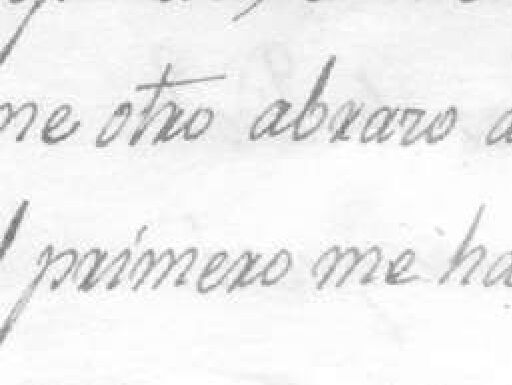 ne otro abraro a
primero me ha